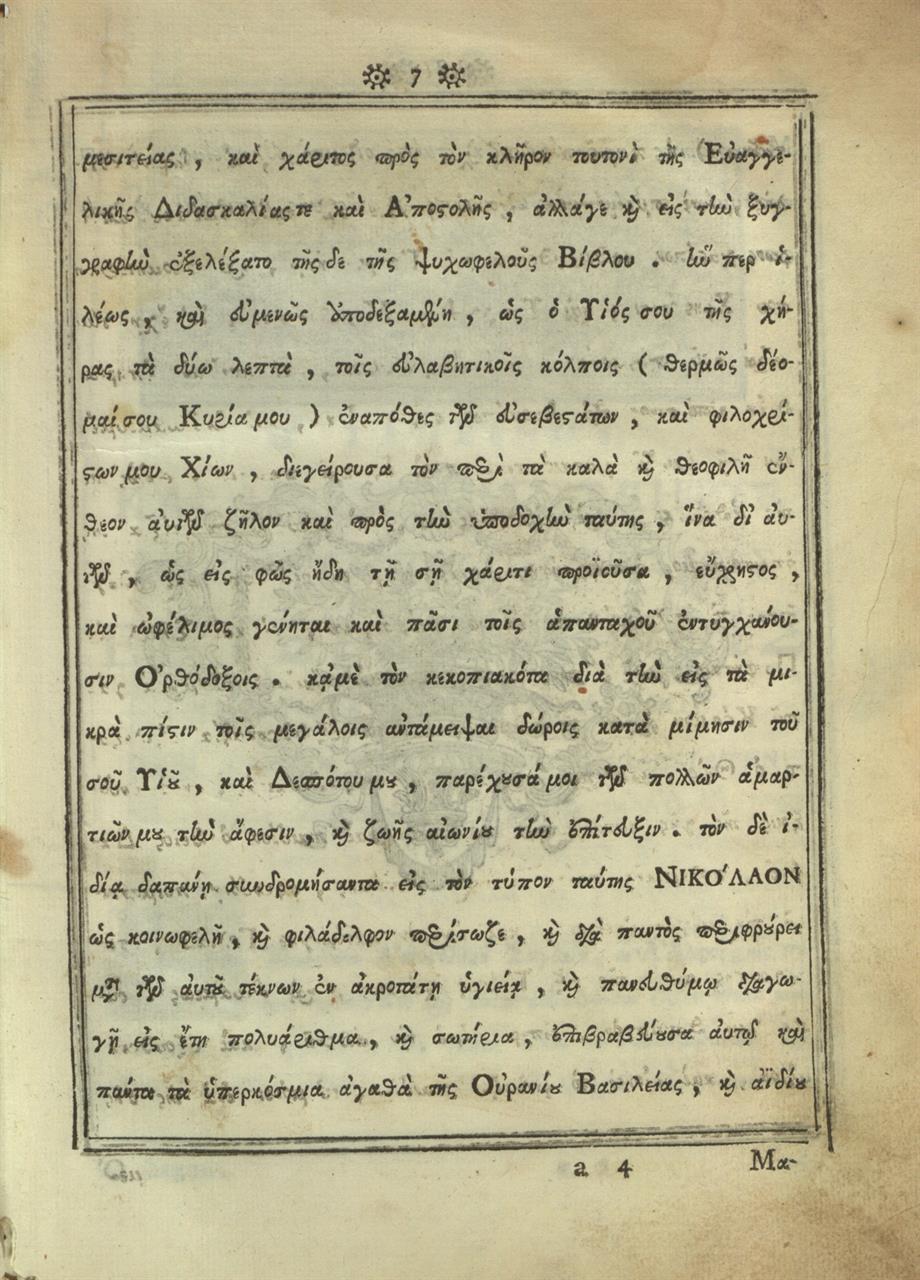 7
μεσιτείας, καὶ χάριτος πρὸς τὸν κλῆρον τουτονὶ τῆς Εὐαγγε-
λικῆς Διδασκαλίας τε καὶ Ἀποστολῆς, ἀλλάγε καὶ εἰς τὴν ξυγ-
γραφὴν ἐξελέξατο τῆς δε τῆς ψυχωφελοῦς Βίβλου. ἣν περ ἱ-
λέως, καὶ εὐμενῶς ὑποδεξαμένη, ὡς ὁ Υἱός σου τῆς χή-
ρας τὰ δύω λεπτὰ, τοῖς εὐλαβητικοῖς κόλποις (θερμῶς δέο-
μαί σου Κυρία μου) ἐναπόθες τῶν εὐσεβεστάτων, καὶ φιλοχρί-
στων μου Χίων, διεγείρουσα τὸν περὶ τὰ καλὰ καὶ θεοφιλῆ ἔν-
θεον αὐτῶν ζῆλον καὶ πρὸς τὴν ὑποδοχὴν ταύτης, ἵνα δι' αὐ-
τῶν, ὡς εἰς φῶς ἤδη τῇ σῇ χάριτι προϊοῦσα, εὔχρηστος,
καὶ ὠφέλιμος γένηται καὶ πᾶσι τοῖς ἁπανταχοῦ ἐντυγχάνου-
σιν Ὀρθόδοξοις. κᾀμὲ τὸν κεκοπιακότα διὰ τὴν εἰς τὰ μι-
κρὰ πίστιν τοῖς μεγάλοις αὐτάμειψαι δώροις κατὰ μίμησιν τοῦ
σοῦ Υἱοῦ, καὶ Δεσπότου μου, παρέχουσά μοι τῶν πολλῶν ἁμαρ-
τιῶν μου τὴν ἄφεσιν, καὶ ζωῆς αἰωνίου τὴν ἐπίτευξιν. τὸν δὲ ἰ-
δίᾳ δαπάνῃ συνδρομήσαντα εἰς τὸν τύπον ταύτης ΝΙΚΌΛΑΟΝ
ὡς κοινωφελῆ, καὶ φιλάδελφον περίσωζε, καὶ διὰ παντὸς περιφρούρει
μετὰ τῶν αὐτοῦ τέκνων ἐν ἀκροτάτῃ ὑγιείᾳ, καὶ πανευθύμῳ διαγω-
γῇ εἰς ἔτη πολυάριθμα, καὶ σωτήρια, ἐπιβραβεύουσα αὐτῷ καὶ
πάντα τὰ ὑπερκόσμια ἀγαθὰ τῆς Οὐρανίου Βασιλείας, καὶ αϊδίου
a 4 Μα-